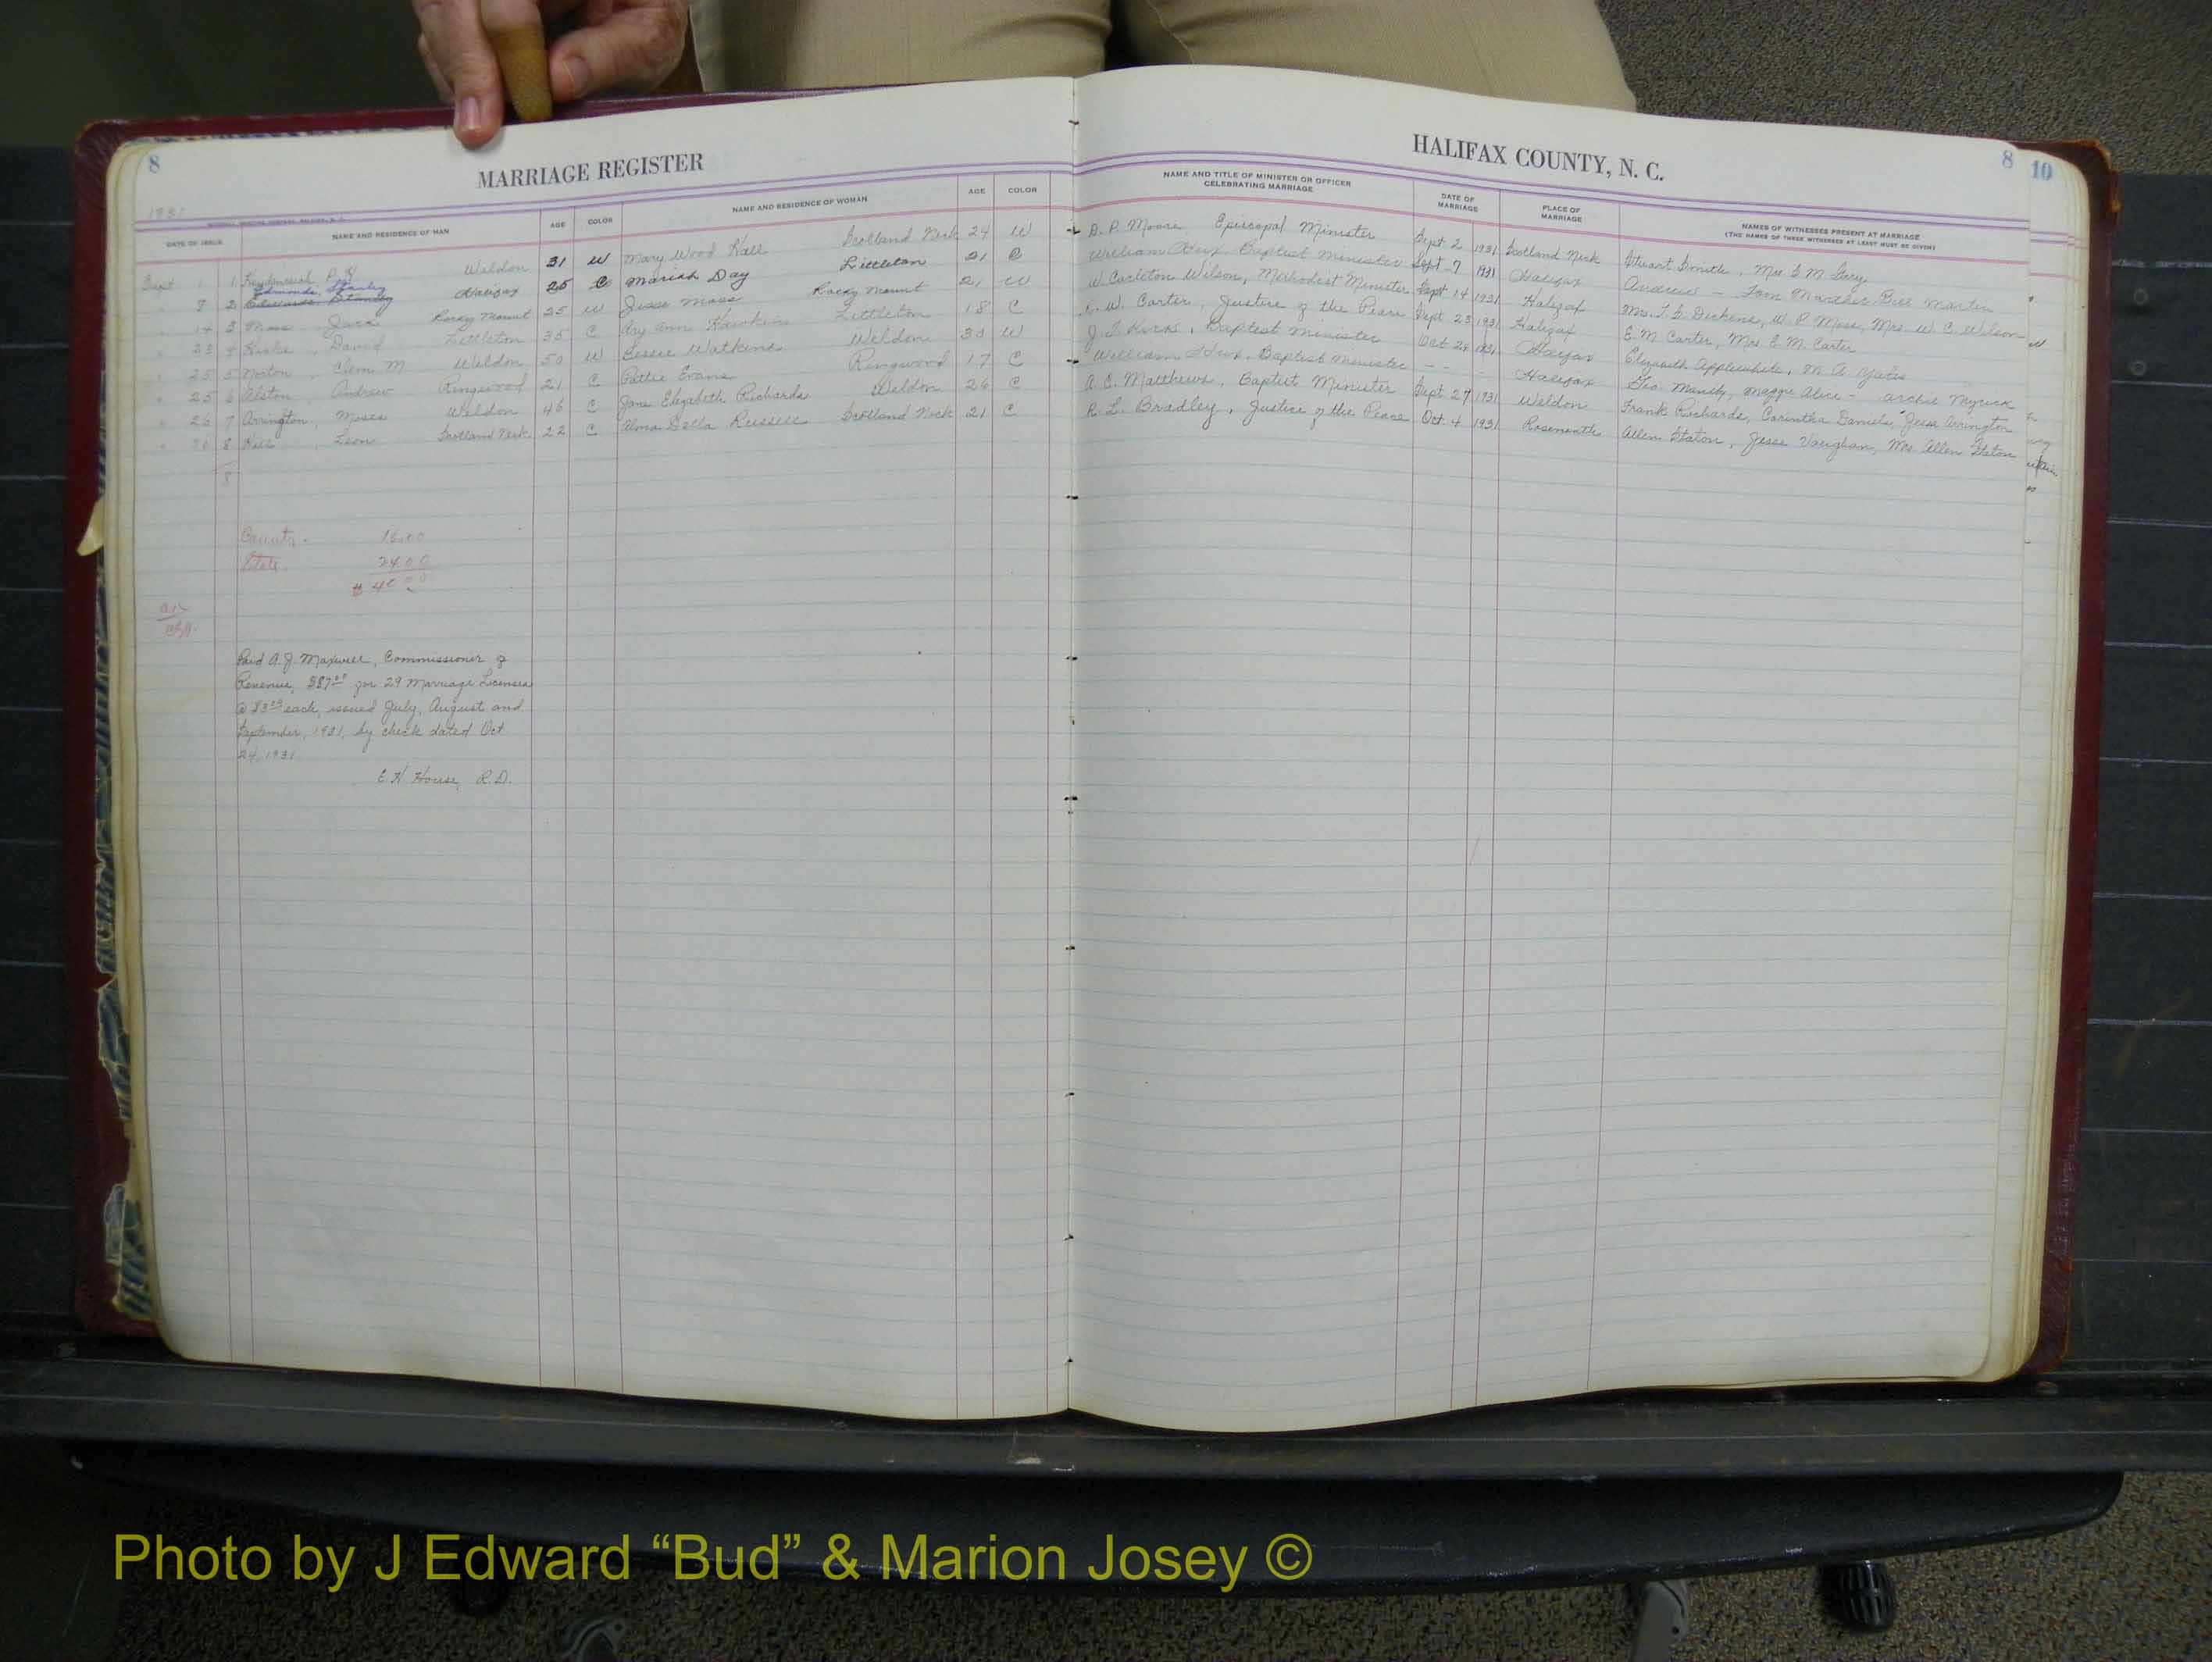 8
MARRIAGE REGISTER
1931
DATE OF ISSUE NAME AND RESIDENCE OF MAN AGE COLOR NAME AND RESIDENCE OF WOMAN AGE COLOR
Sept 1 1 P. H. Weldon 31 W Mary Wood Hall Scotland Neck 24 W
Edmonds, Stanley
7 2 Edwards, Stanley Halifax 25 C Mariah Day Littleton 21 C
14 3 Moss, Jack Rocky Mount 25 W Jesse Moss Rocky Mount 21 W
23 4 David Littleton 35 C Ary Ann Hawkins Littleton 18 C
25 5 Norton, Cleon M Weldon 50 W Bessie Watkins Weldon 30 W
25 6 Alston, Andrew Ringwood 21 C Pattie Evans Ringwood 17 C
26 7 Arrington, Moses Weldon 46 C Jane Elizabeth Richards Weldon 26 C
8 Hill, Leon Scotland Neck 22 C Alma Della Russell Scotland Neck 21 C
8
County - 16.00
State - 24.00
$40.00
Paid A. J. Maxwell, Commissioner of
Revenue, $87.00 for 29 Marriage Licenses
@ $3.00 each, issued July, August and
September, 1931, by check dated Oct
24, 1931.
E. H. House, R.D.
HALIFAX COUNTY, N. C.
8 10
NAME AND TITLE OF MINISTER OR OFFICER CELEBRATING MARRIAGE DATE OF MARRIAGE PLACE OF MARRIAGE NAMES OF WITNESSES PRESENT AT MARRIAGE
(THE NAMES OF THREE WITNESSES AT LEAST MUST BE GIVEN)
B. P. Moore, Episcopal Minister Sept. 2 1931 Scotland Neck Stuart Smith, Mrs.
William Hux, Baptist Minister Sept. 7 1931 Halifax Andrew - Tom Martin
W. Carleton Wilson, Methodist Minister Sept 14 1931 Halifax Mrs. L. G. Dickens, W. P. Moss, Mrs. W. C. Wilson
W. Carter, Justice of the Peace Sept. 23 1931 Halifax E. M. Carter, Mrs. E. M. Carter
J. T. Kirk, Baptist Minister Oct 1931 Halifax Elizabeth Applewhite, M. A. Yates
William Hux, Baptist Minister - - - Halifax Geo. Manily, Maggie Alice - Archie Myrick
A. C. Matthews, Baptist Minister Sept 27 1931 Weldon Frank Richards, Corintha Daniels, Jesse Arrington
R. L. Bradley, Justice of the Peace Oct. 4 1931 Roseneath Allen Staton, Jesse Vaughan, Mrs. Allen Staton
Photo by J Edward “Bud” & Marion Josey ©